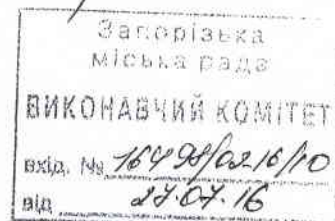 Запорізька
міська рада
ВИКОНАВЧИЙ КОМІТЕТ
вхід. № 16498/02.16/10
від 27.07.16